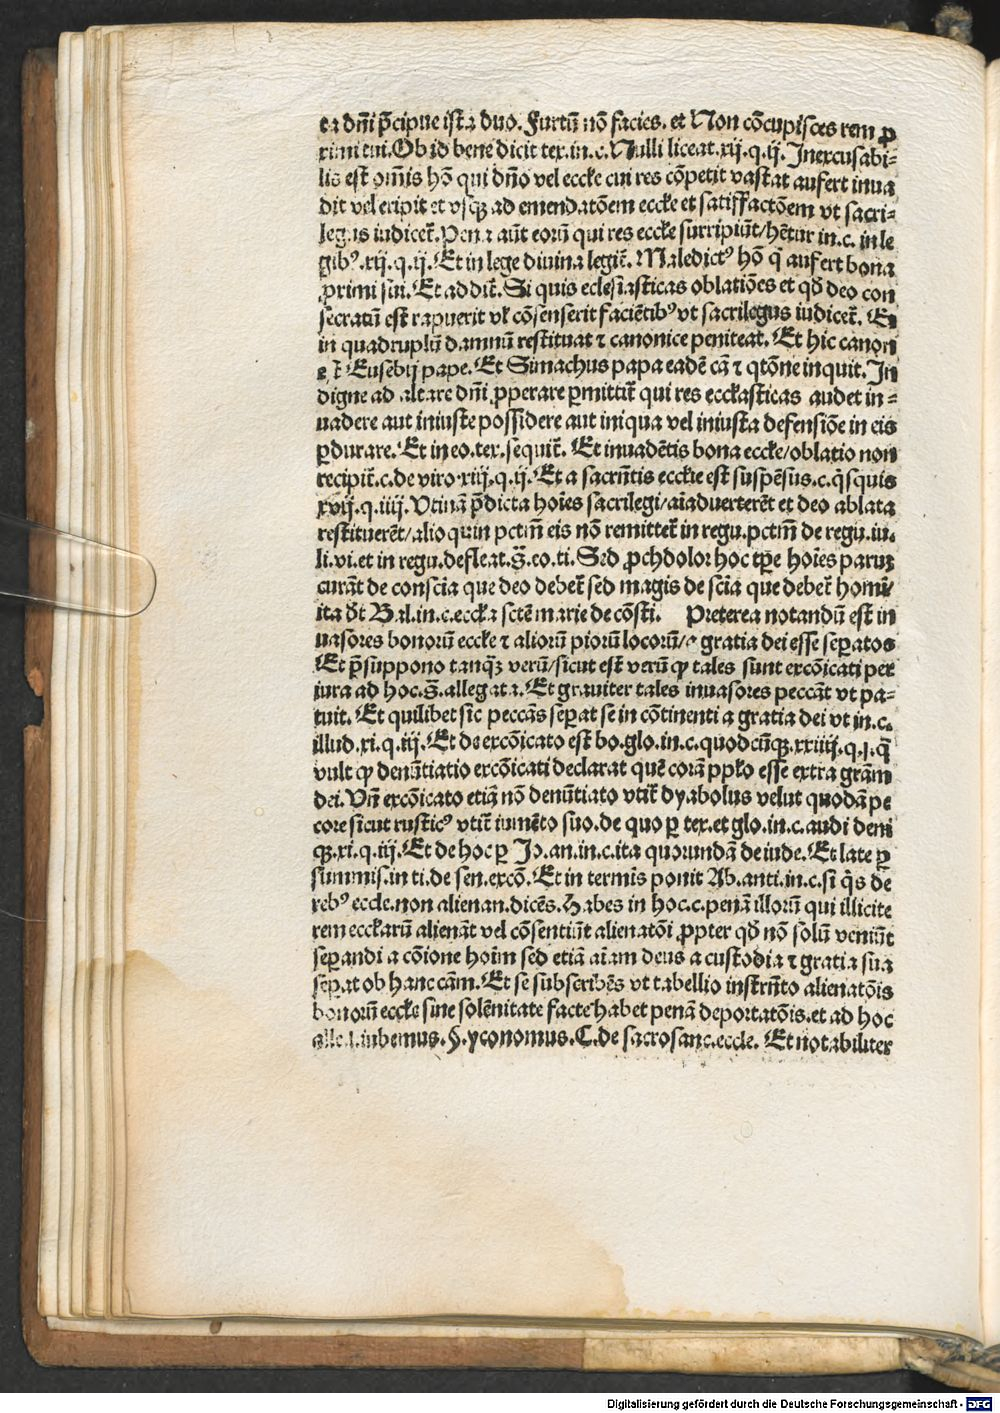 ta dñi p̄cipue ista duo. Furtū nō facies. et Non cōcupisces rem ꝓ
ximi tui. Ob id bene dicit tex. in. c. Nulli liceat. xij. q. ij. Inexcusabi⸗
lis est omnis hō qui dño vel eccłe cui res cōpetit vastat aufert inua
dit vel eripit et vsqꝫ ad emendatōem eccłe et satiffactōem vt sacri⸗
legus iudicet̄. Pena aūt eorū qui res eccłe surripiūt/ hētur in. c. in le
gibꝰ. xij. q. ij. Et in lege diuina legit̄. Maledictꝰ hō q̄ aufert bona
ꝓximi sui. Et addit̄. Si quis eclesiasticas oblatiōes et qđ deo con
secratū est rapuerit vł cōsenserit faciētibꝰ vt sacrilegus iudicet̄. Et
in quadruplū damnū restituat ⁊ canonice peniteat. Et hic canon
e t̄ Eusebij pape. Et Simachus papa eadē cā ⁊ qtōne inquit. In
digne ad altare dñi ꝓperare ꝑmittit̄ qui res eccłasticas audet in⸗
uadere aut iniuste possidere aut iniqua vel iniusta defensiōe in eis
ꝑdurare. Et in eo. tex. sequit̄. Et inuadētis bona eccłe/ oblatio non
recipit̄. c. de viro. xiij. q. ij. Et a sacrñtis eccłie est suspēsus. c. q̄squis
xvij. q. iiij. Vtinā p̄dicta hoīes sacrilegi/ aīaduerterēt et deo ablata
restituerēt/ alioquin pctm̄ eis nō remittet̄ in regu. pctm̄ de regu. iu.
li. vi. et in regu. defleat. S̄. eo. ti. Sed ꝓchdolor hoc tꝑe hoīes paruꝫ
curāt de conscīa que deo debet̄ sed magis de scīa que debet̄ homī/
ita đt Bal. in. c. eccła sctē marie de cōsti. Preterea notandū est in
uasores bonorū eccłe ⁊ aliorū piorū locorū/ a gratia dei esse seꝑatos
Et p̄suppono tanqꝫ̄ verū/ sicut est verū ꝙ tales sunt excōicati per
iura ad hoc. S̄. allegata. Et grauiter tales inuasores peccāt vt pa⸗
tuit. Et quilibet sic peccās seꝑat se in cōtinenti a gratia dei vt in. c.
illud. xi. q. iij. Et de excōicato est bo. glo. in. c. quodcūqꝫ. xxiiij. q. j. q̄
vult ꝙ denūtiatio excōicati declarat quē corā ppło esse extra grām
dei. Vn̄ excōicato etiā nō denūtiato vtit̄ dyabolus velut quodā pe
core sicut rusticꝰ vtit̄ iumēto suo. de quo ꝑ tex. et glo. in. c. audi deni
qꝫ. xi. q. iij. Et de hoc ꝑ Jo. an. in. c. ita quorundā de iude. Et late ꝑ
summis. in ti. de sen. excō. Et in termīs ponit Ab. anti. in. c. si q̄s de
rebꝰ eccłe. non alienan. dicēs. Habes in hoc. c. penā illorū qui illicite
rem eccłarū alienāt vel cōsentiūt alienatōi ꝓpter qđ nō solū veniūt
seꝑandi a cōione hoīm sed etiā aīam deus a custodia ⁊ gratia sua
seꝑat ob hanc cām. Et se subscribēs vt tabellio instrn̄to alienatōis
bonorū eccłe sine solēnitate facte habet penā deportatōis. et ad hoc
alle. l. iubemus. §. yconomus. C. de sacrosanc. eccle. Et notabiliter
Digitalisierung gefördert durch die Deutsche Forschungsgemeinschaft - DFG